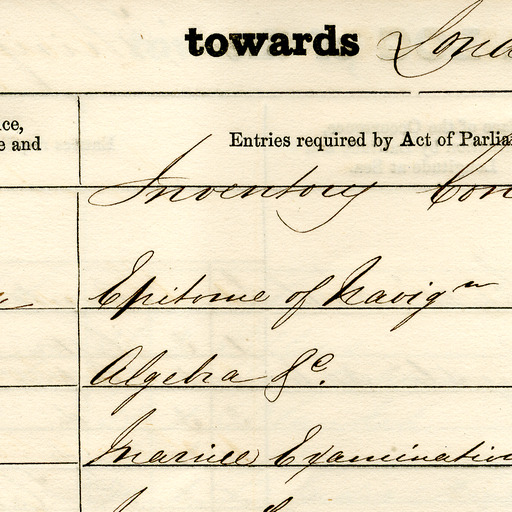 towards
ce,
e and
Entries required by Act of Parlia
Inventory Con
Epitome of Navigⁿ
Algebra &c.
Marine Examination